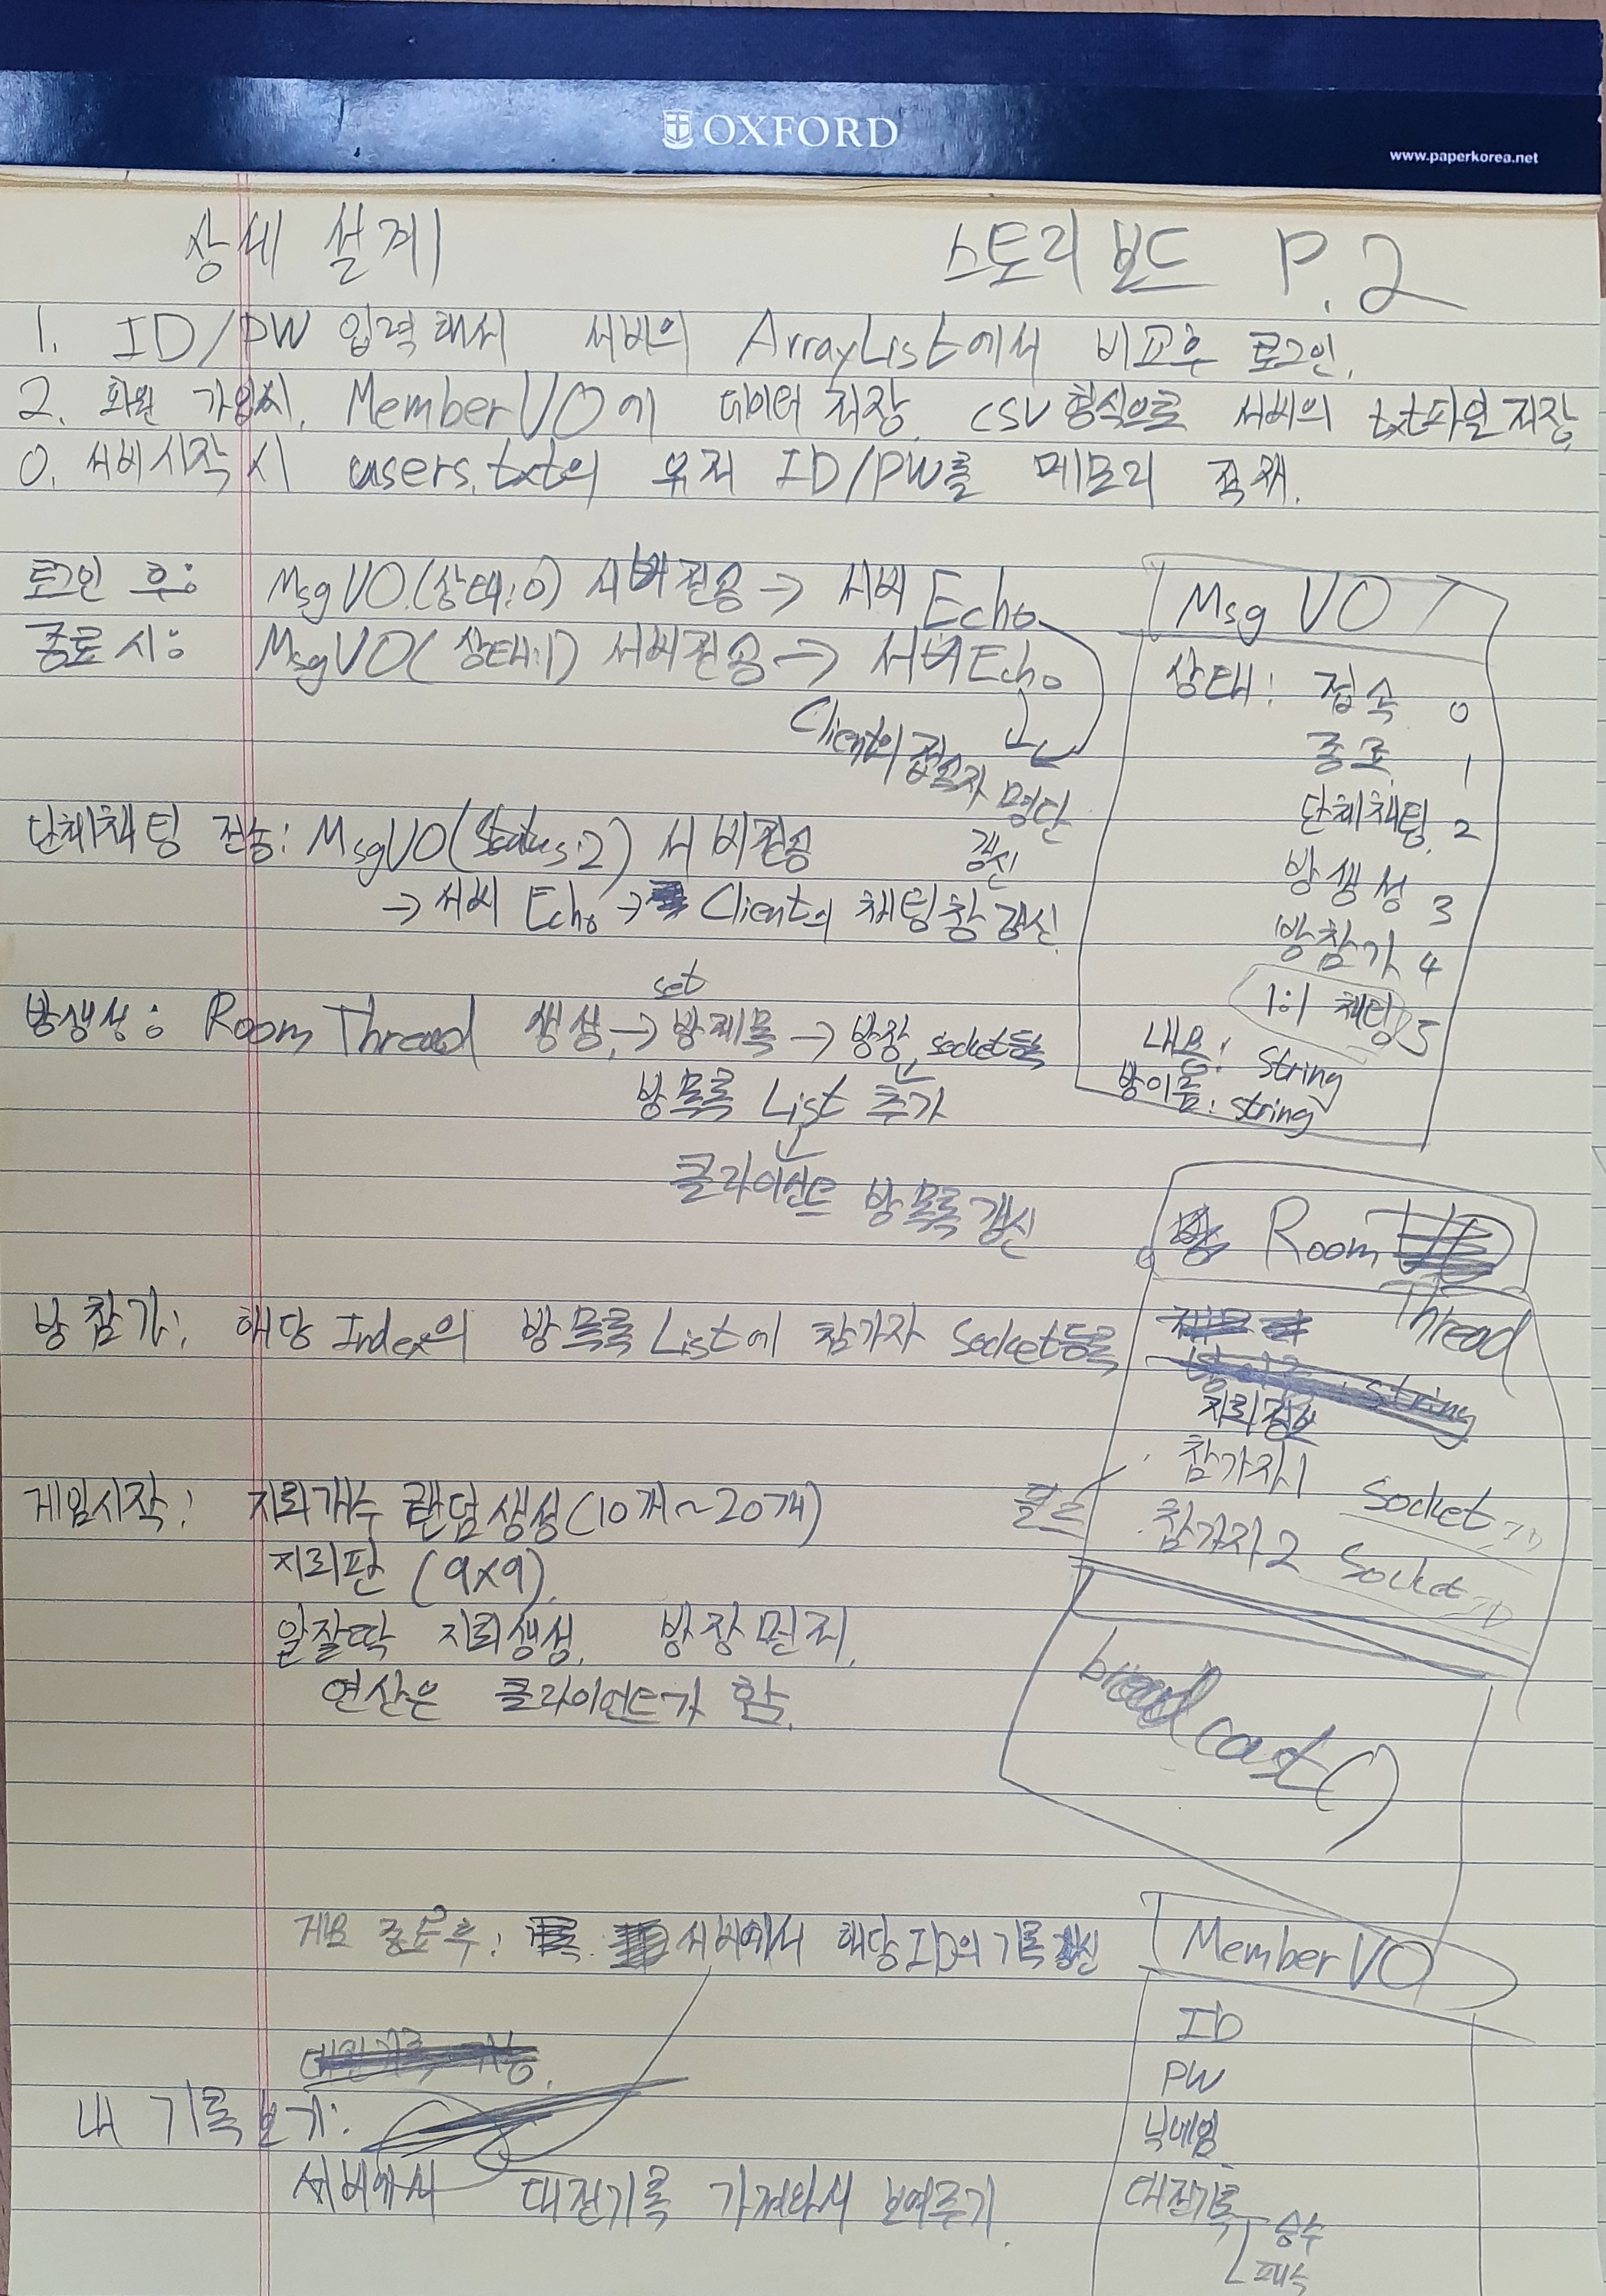 OXFORD
www.paperkorea.net
상세 설계
스토리 보드 P.2
1. ID/PW 입력해서 서버의 ArrayList에서 비교후 로그인.
2. 회원 가입시, MemberVO에 데이터 저장. CSV형식으로 서버의 txt파일 저장
0. 서버시작시 users.txt의 유저 ID/PW를 메모리 적재.
로그인 후: MsgVO(상태:0) 서버전송 → 서버 Echo
종료 시: MsgVO(상태:1) 서버전송 → 서버 Echo
Client의 접속자 명단
갱신
단체채팅 전송: MsgVO(Status:2) 서버전송
→ 서버 Echo → Client의 채팅창 갱신
set
방생성: Room Thread 생성 → 방제목 → 방장 socket등록
방 목록 List 추가
클라이언트 방 목록 갱신
방 참가: 해당 Index의 방 목록 List에 참가자 Socket등록
게임시작: 지뢰개수 랜덤생성(10개~20개)
지뢰판 (9x9)
알잘딱 지뢰생성. 방장먼저.
연산은 클라이언트가 함.
게임 종료후: 서버에서 해당 ID의 기록갱신
내 기록 보기:
서버에서 대전기록 가져와서 보여주기.
Msg VO
상태: 접속 0
종료 1
단체채팅 2
방생성 3
방참가 4
1:1 채팅 5
내용: String
방이름: String
Room
Thread
지뢰정보
참가자1 Socket
참가자2 Socket
broadcast()
MemberVO
ID
PW
닉네임
대전기록
승수
패수